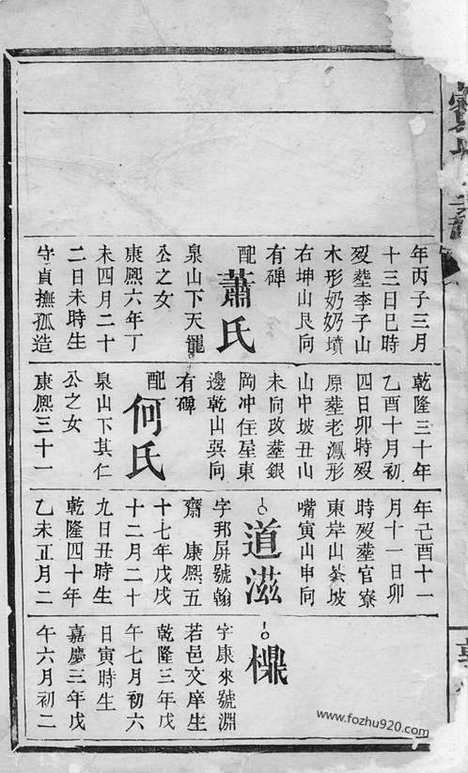 年丙子三月
十三日巳時
歿塟李子山
木形奶奶墳
右坤山艮向
有碑
配蕭氏
泉山下天寵
公之女
康熙六年丁
未四月二十
二日未時生
守貞撫孤造
乾隆三十年
乙酉十月初
四日卯時歿
原塟老鳳形
山中坡丑山
未向改塟銀
岡冲住屋東
邊乾山巽向
有碑
配何氏
泉山下其仁
公之女
康熙三十一
年己酉十一
月十一日卯
時歿塟官寮
東岸山坡
嘴寅山申向
道滋
字邦屏號翰
齋 康熙五
十七年戊戌
十二月二十
九日丑時生
乾隆四十年
乙未正月二
字康來號淵
若邑文庠生
乾隆三年戊
午七月初六
日寅時生
嘉慶三年戊
午六月初二
www.fozhu920.com